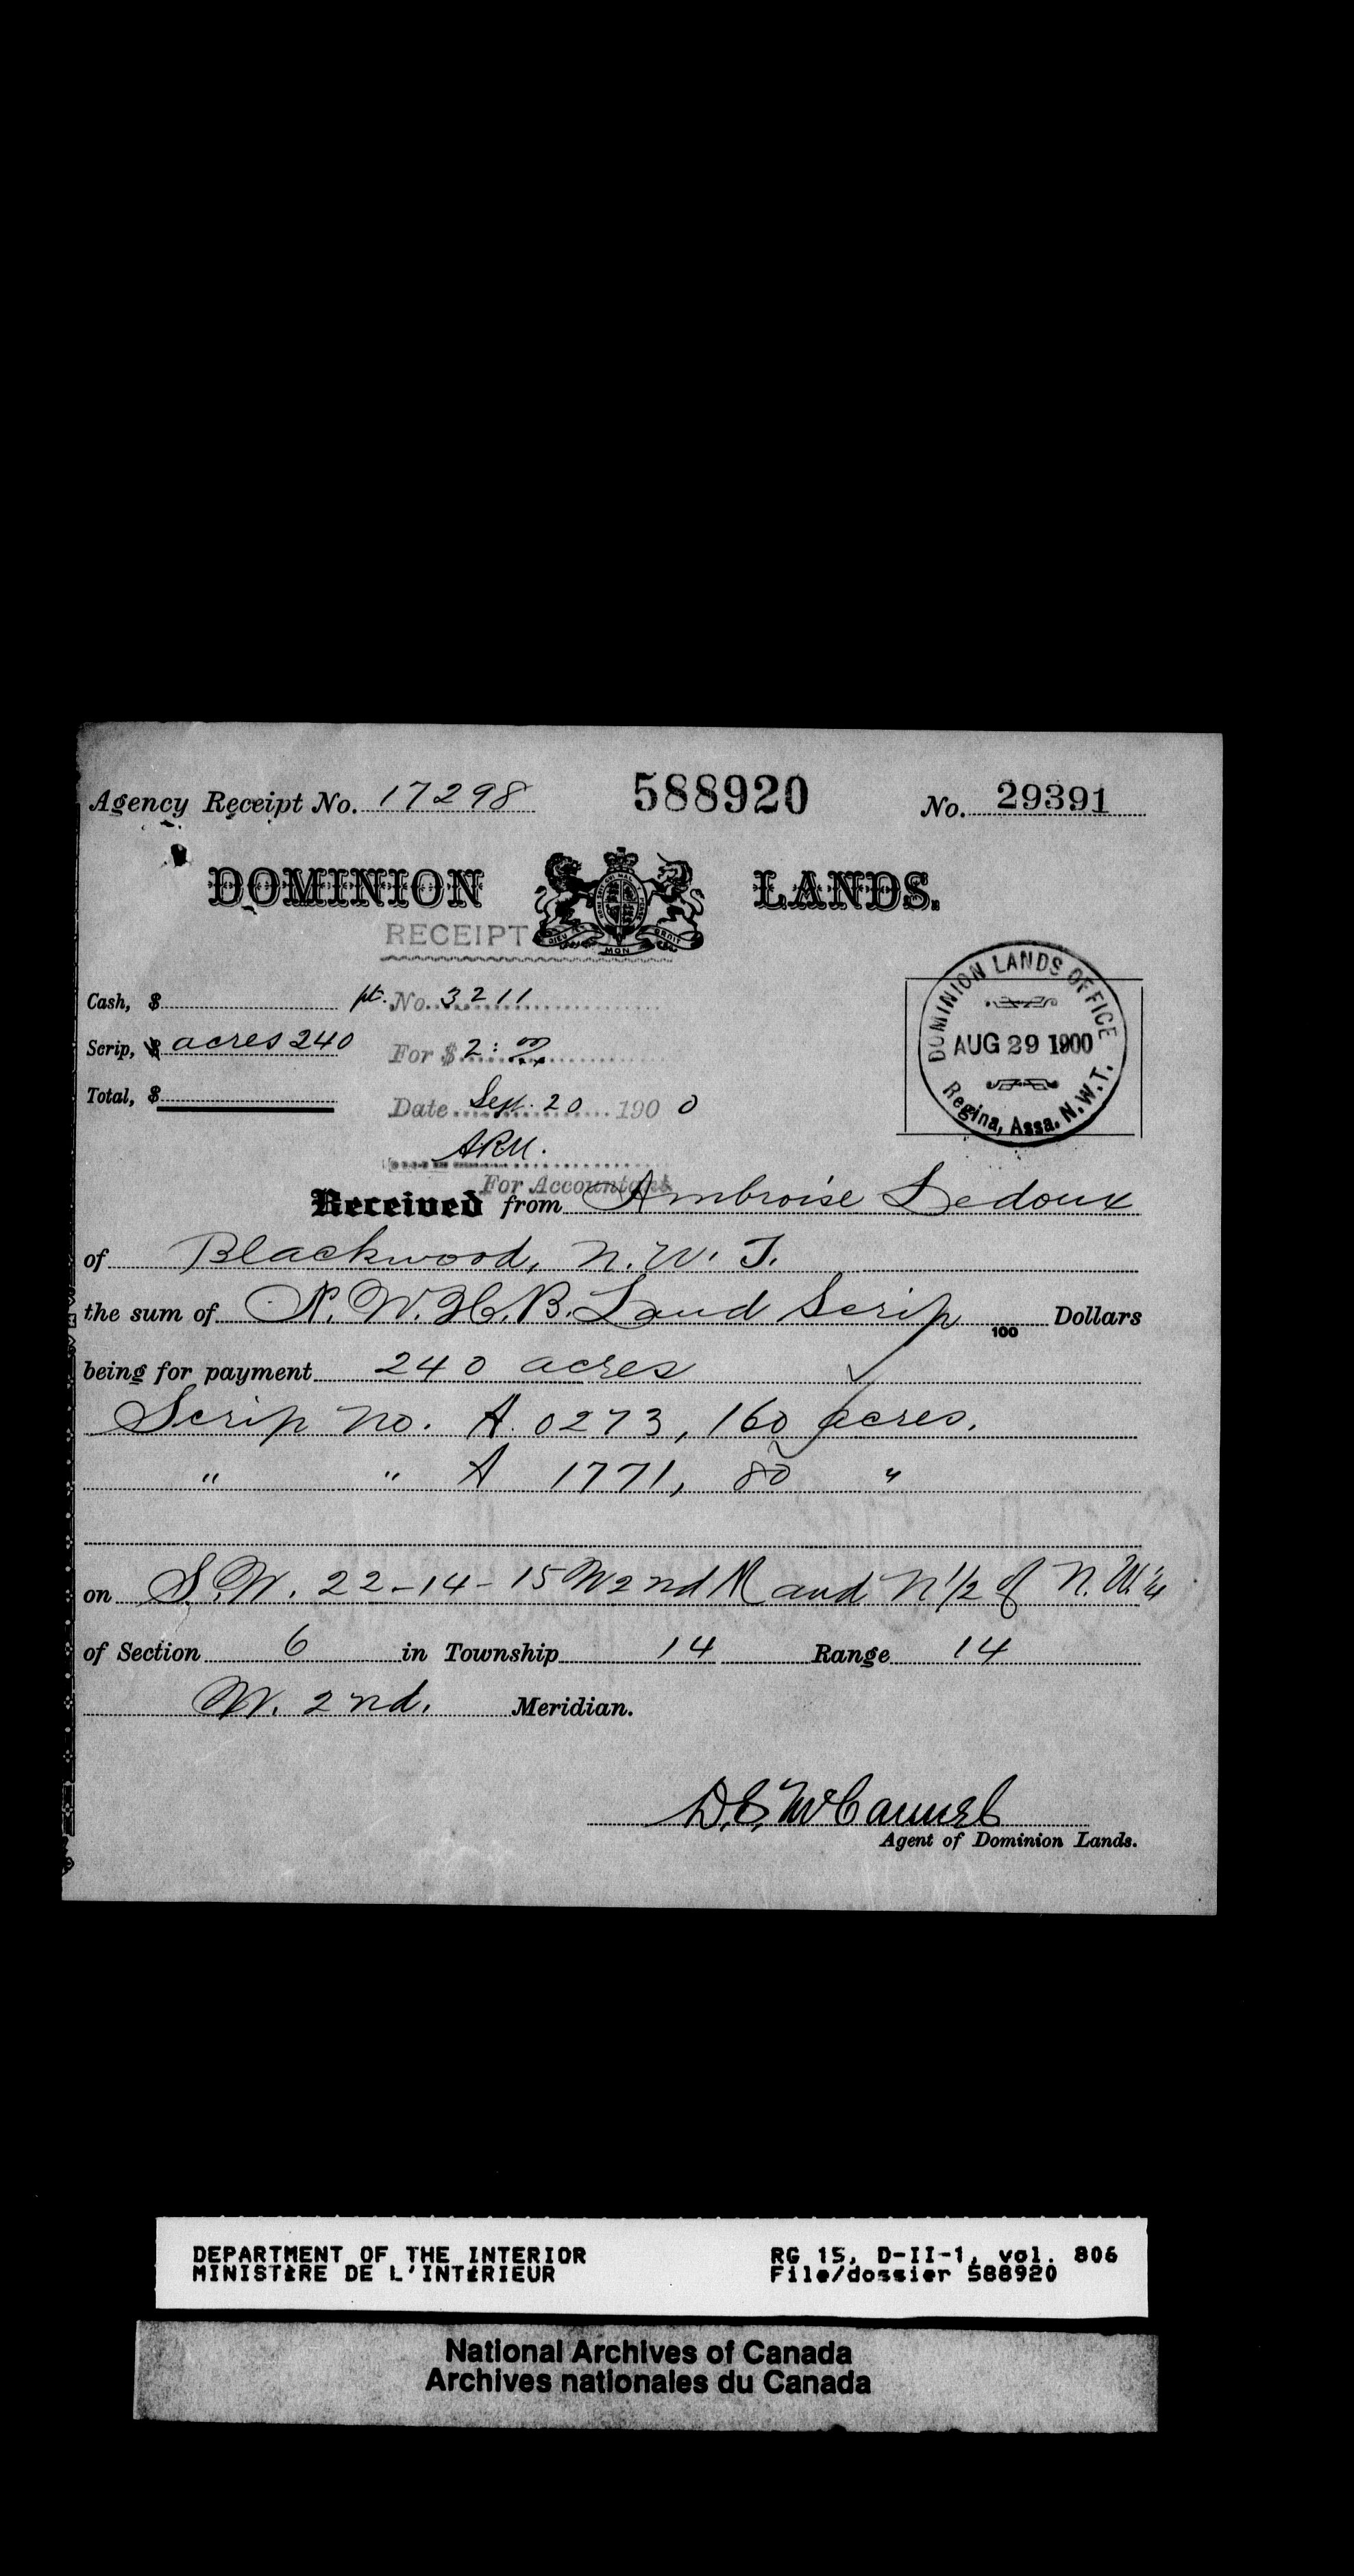 Agency Receipt No. 17298 588920 No. 29391
DOMINION LANDS.
DIEU ET MON DROIT
RECEIPT
Cash, $ pt. No. 3211
Scrip, $ acres 240 For $ 2:00
Total, $ Date Sept. 20 1900
ARM.
For Accountant
DOMINION LANDS OFFICE
AUG 29 1900
Regina, Assa. N.W.T.
Received from Ambroise Ledoux
of Blackwood, N.W.T.
the sum of N.W.H.B. Land Scrip 100 Dollars
being for payment 240 acres
Scrip no. A. 0273, 160 acres.
" " A 1771, 80 "
on S.W. 22-14-15 W 2nd M and N 1/2 of N.W. 1/4
of Section 6 in Township 14 Range 14
W. 2nd. Meridian.
D.S. McCannel
Agent of Dominion Lands.
DEPARTMENT OF THE INTERIOR RG 15, D-II-1, vol. 806
MINISTÈRE DE L'INTÉRIEUR File/dossier 588920
National Archives of Canada
Archives nationales du Canada